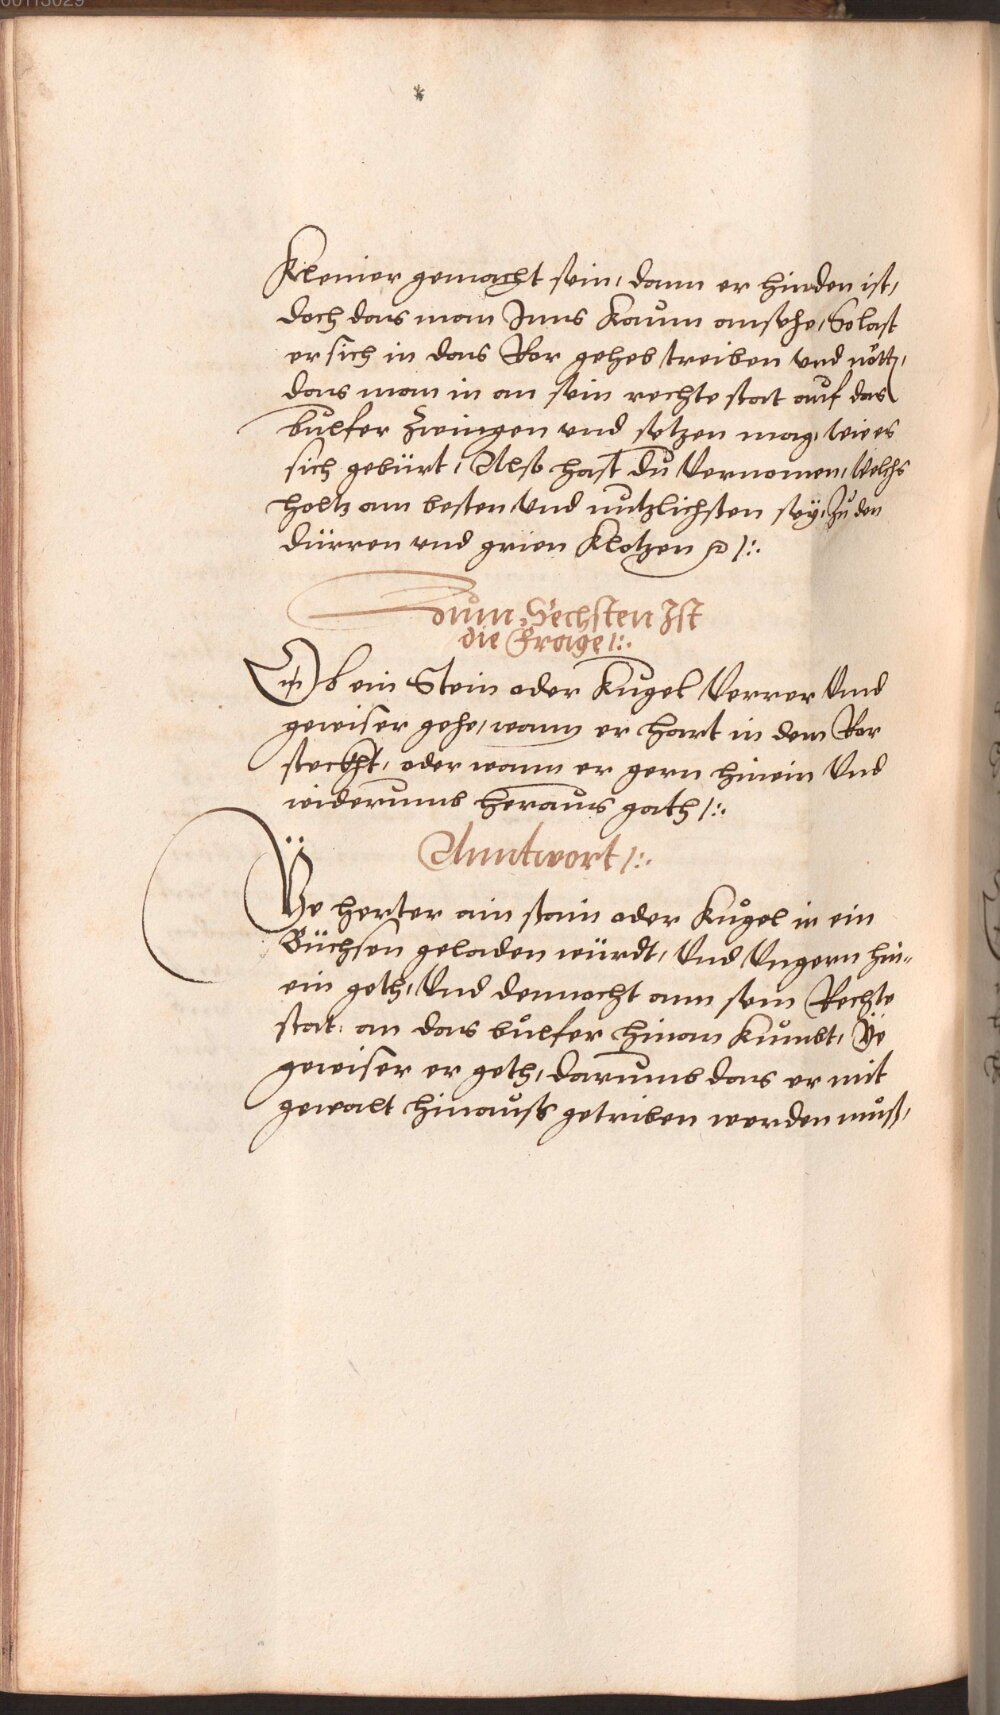 00113029
Klenier gemacht sein, dann er hinden ist,
doch das man Jnns kaum ansehe, So last
er sich in das Ror geheb treiben vnd nött,
das man in an sein rechte stat auf das
bulfer zwingen vnd setzen mag, wie es
sich gebürt, Also hast du Vernomen, welchs
holtz am besten vnd nutzlichsten seÿ, Zu den
dürren vnd grien Klotzen /:.
Zum Sechsten Ist
die Frage /:.
Ob ein Stein oder Kugel Verrer Vnd
gewiser gehe, wann er hart in dem Ror
steckht, oder wann er gern hinein Vnd
widerumb heraus gath /:.
Anntwort /:.
Ÿe herter ain stain oder Kugel in ein
Büchsen geladen würdt, Vnd Vngern hin-
ein geth, Vnd dennocht ann sein Rechte
stat, an das bulfer hinan kumbt, Ÿe
gewiser er geth, darumb das er mit
gewalt hinauß getriben werden muß,